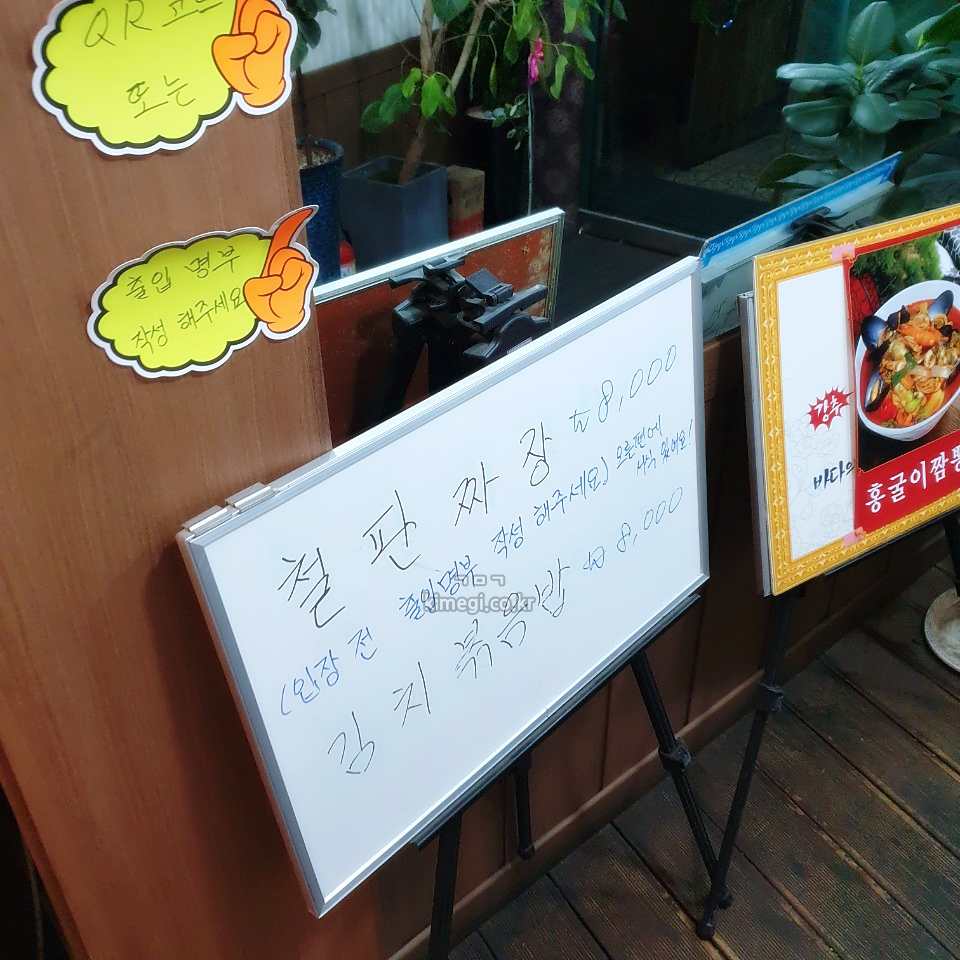 QR 코드
또는
출입 명부
작성 해주세요
철판짜장 ₩8,000
(입장 전 출입명부 작성 해주세요) 오른편에
서식 있어요!
김치볶음밥 ₩8,000
ㄱㅁㄱ
kimegi.co.kr
강추
바다의
홍굴이짬뽕